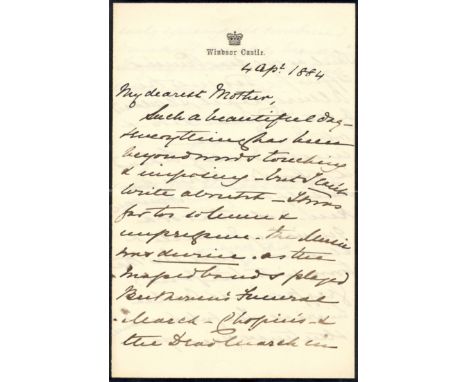 Windsor Castle.
4 Apl. 1884
My dearest Mother,
Such a beautiful day –
& everything has been
beyond words touching
& imposing – but I can't
write about it – It was
far too solemn &
impressive – The Music
was divine. as the
Massed bands played
Beethoven's Funeral
March – Chopin's – &
the Dead March in